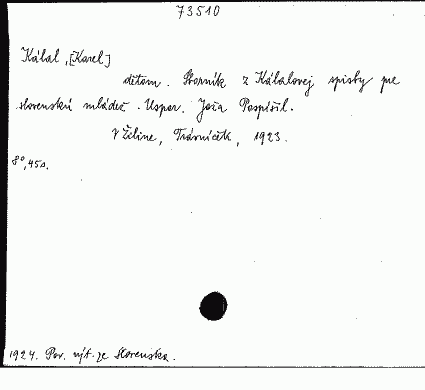 73510
Kálal, [Karel]
dětom. Sborník z Kálalovej spisby pre
slovenskú mládež. Uspor. Joža Pospíšil.
V Žiline, Trávníček, 1923.
8°, 45 s.
1924. Pov. výt. ze Slovenska.